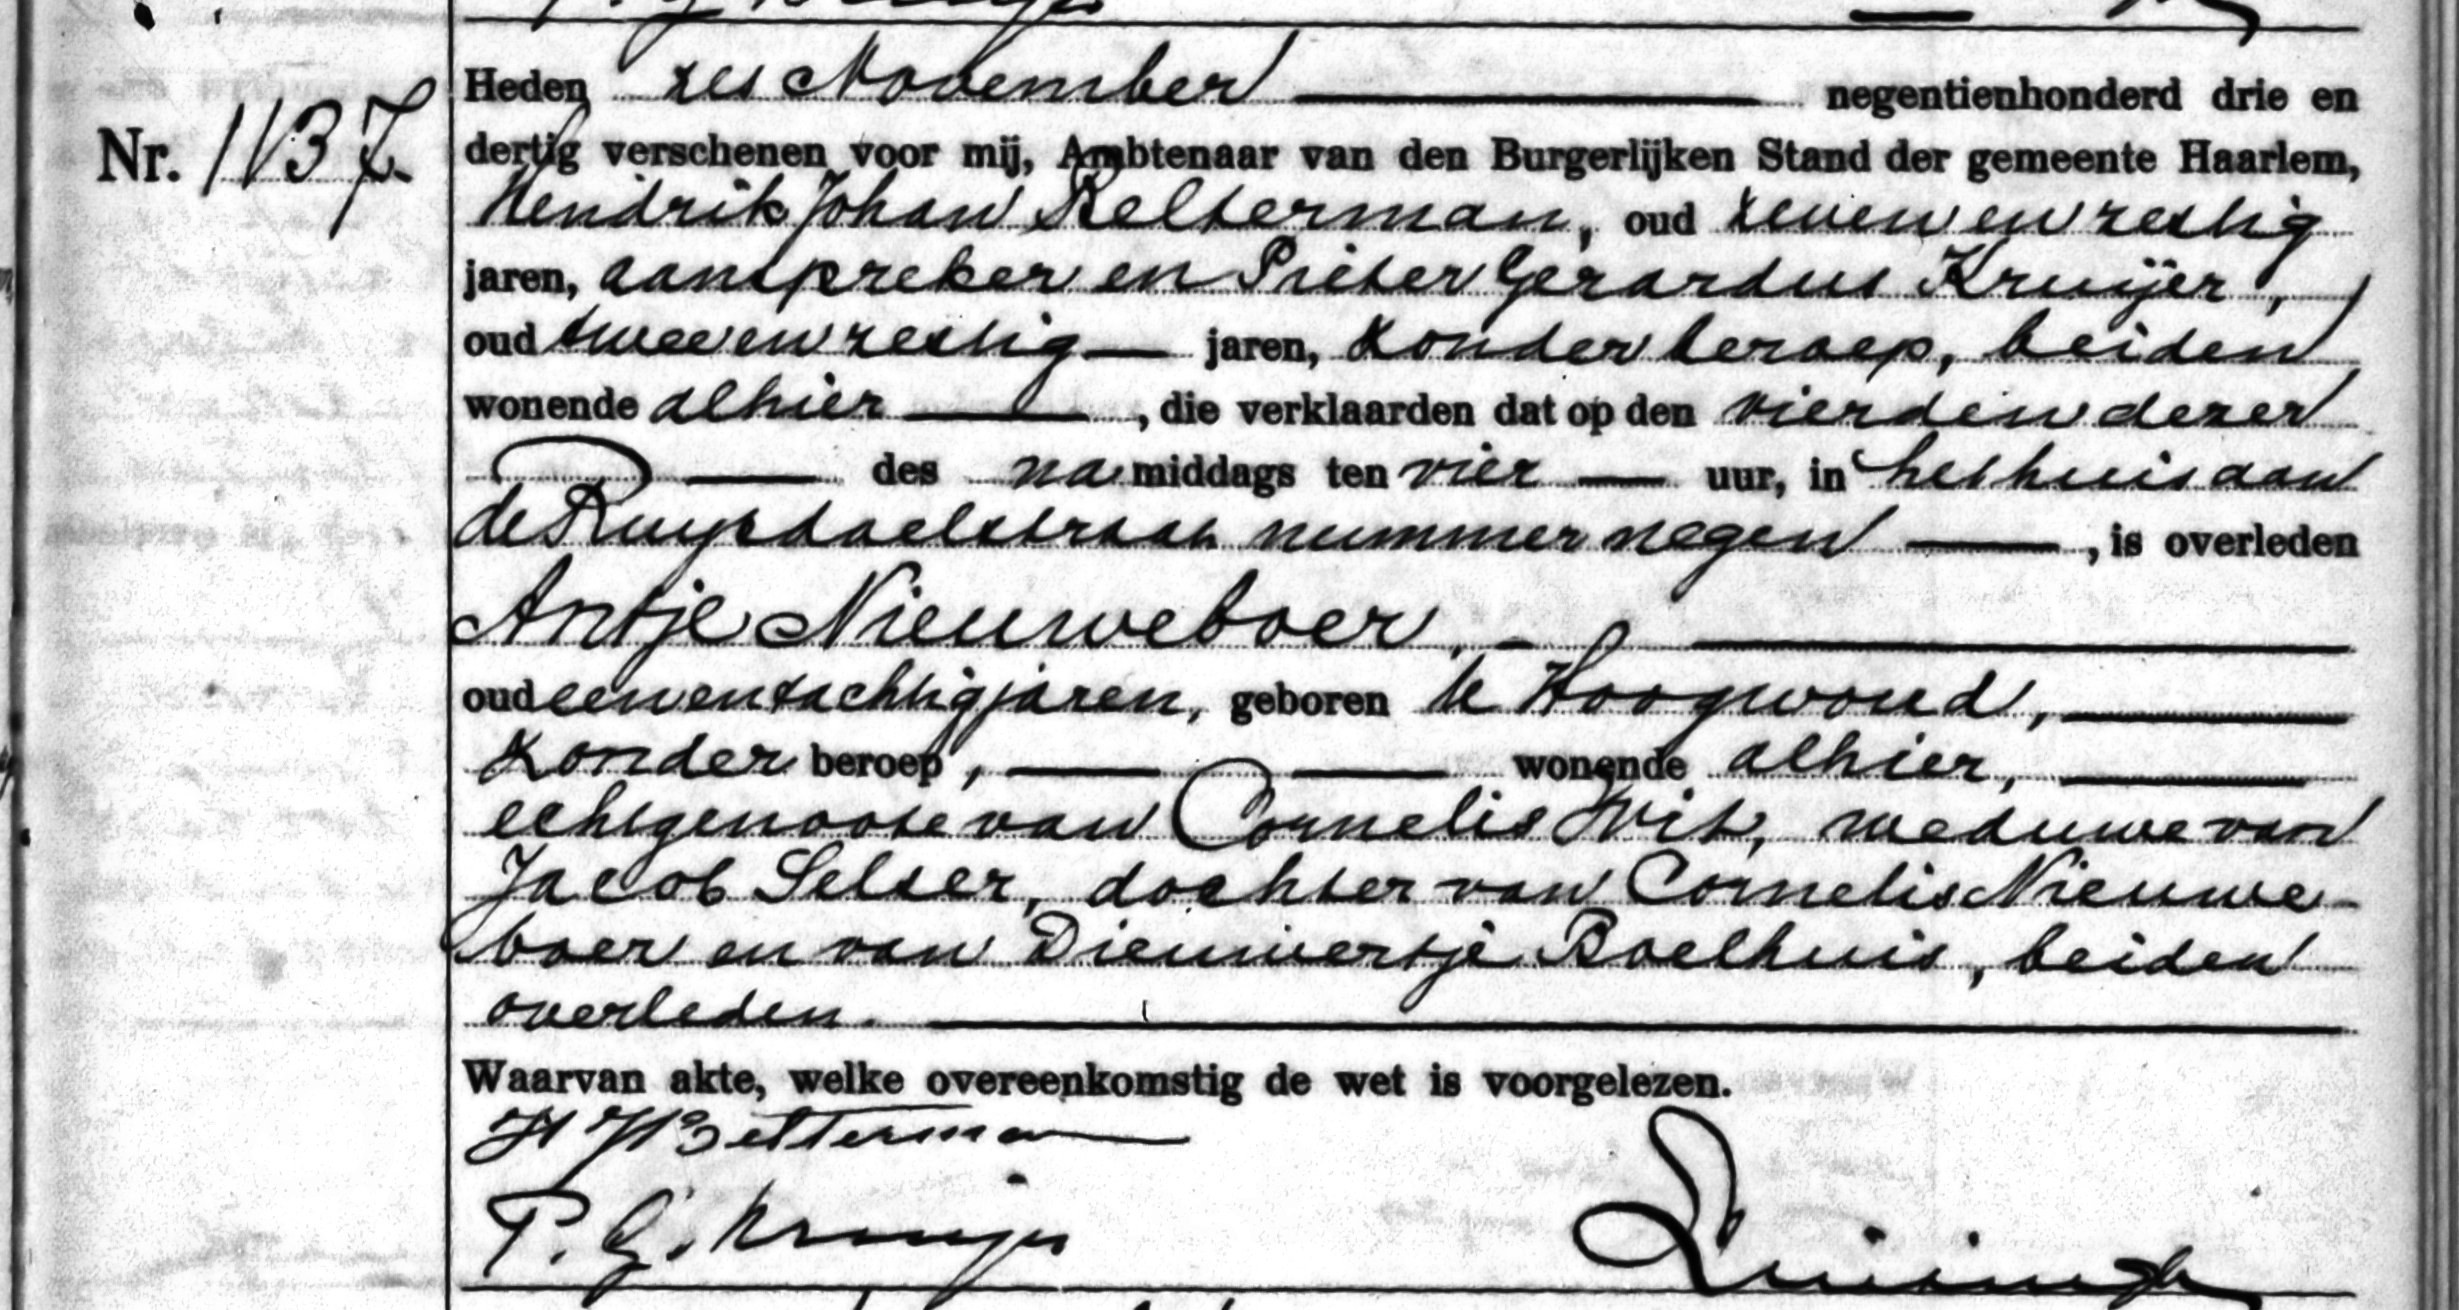 Nr. 1137
Heden zes November negentienhonderd drie en
dertig verschenen voor mij, Ambtenaar van den Burgerlijken Stand der gemeente Haarlem,
Hendrik Johan Belterman, oud zeven en zestig
jaren, aanspreker en Pieter Gerardus Kruijer,
oud twee en zestig jaren, zonder beroep, beiden
wonende alhier, die verklaarden dat op den vierden dezer
des namiddags ten vier uur, in het huis aan
de Ruysdaelstraat nummer negen, is overleden
Antje Nieuweboer,
oud een en tachtig jaren, geboren te Hoogwoud,
zonder beroep, wonende alhier,
echtgenoote van Cornelis Wit, weduwe van
Jacob Selser, dochter van Cornelis Nieuwe-
boer en van Dieuwertje Boelhuis, beiden
overleden.
Waarvan akte, welke overeenkomstig de wet is voorgelezen.
H J Betterman
P. G. Kruijer